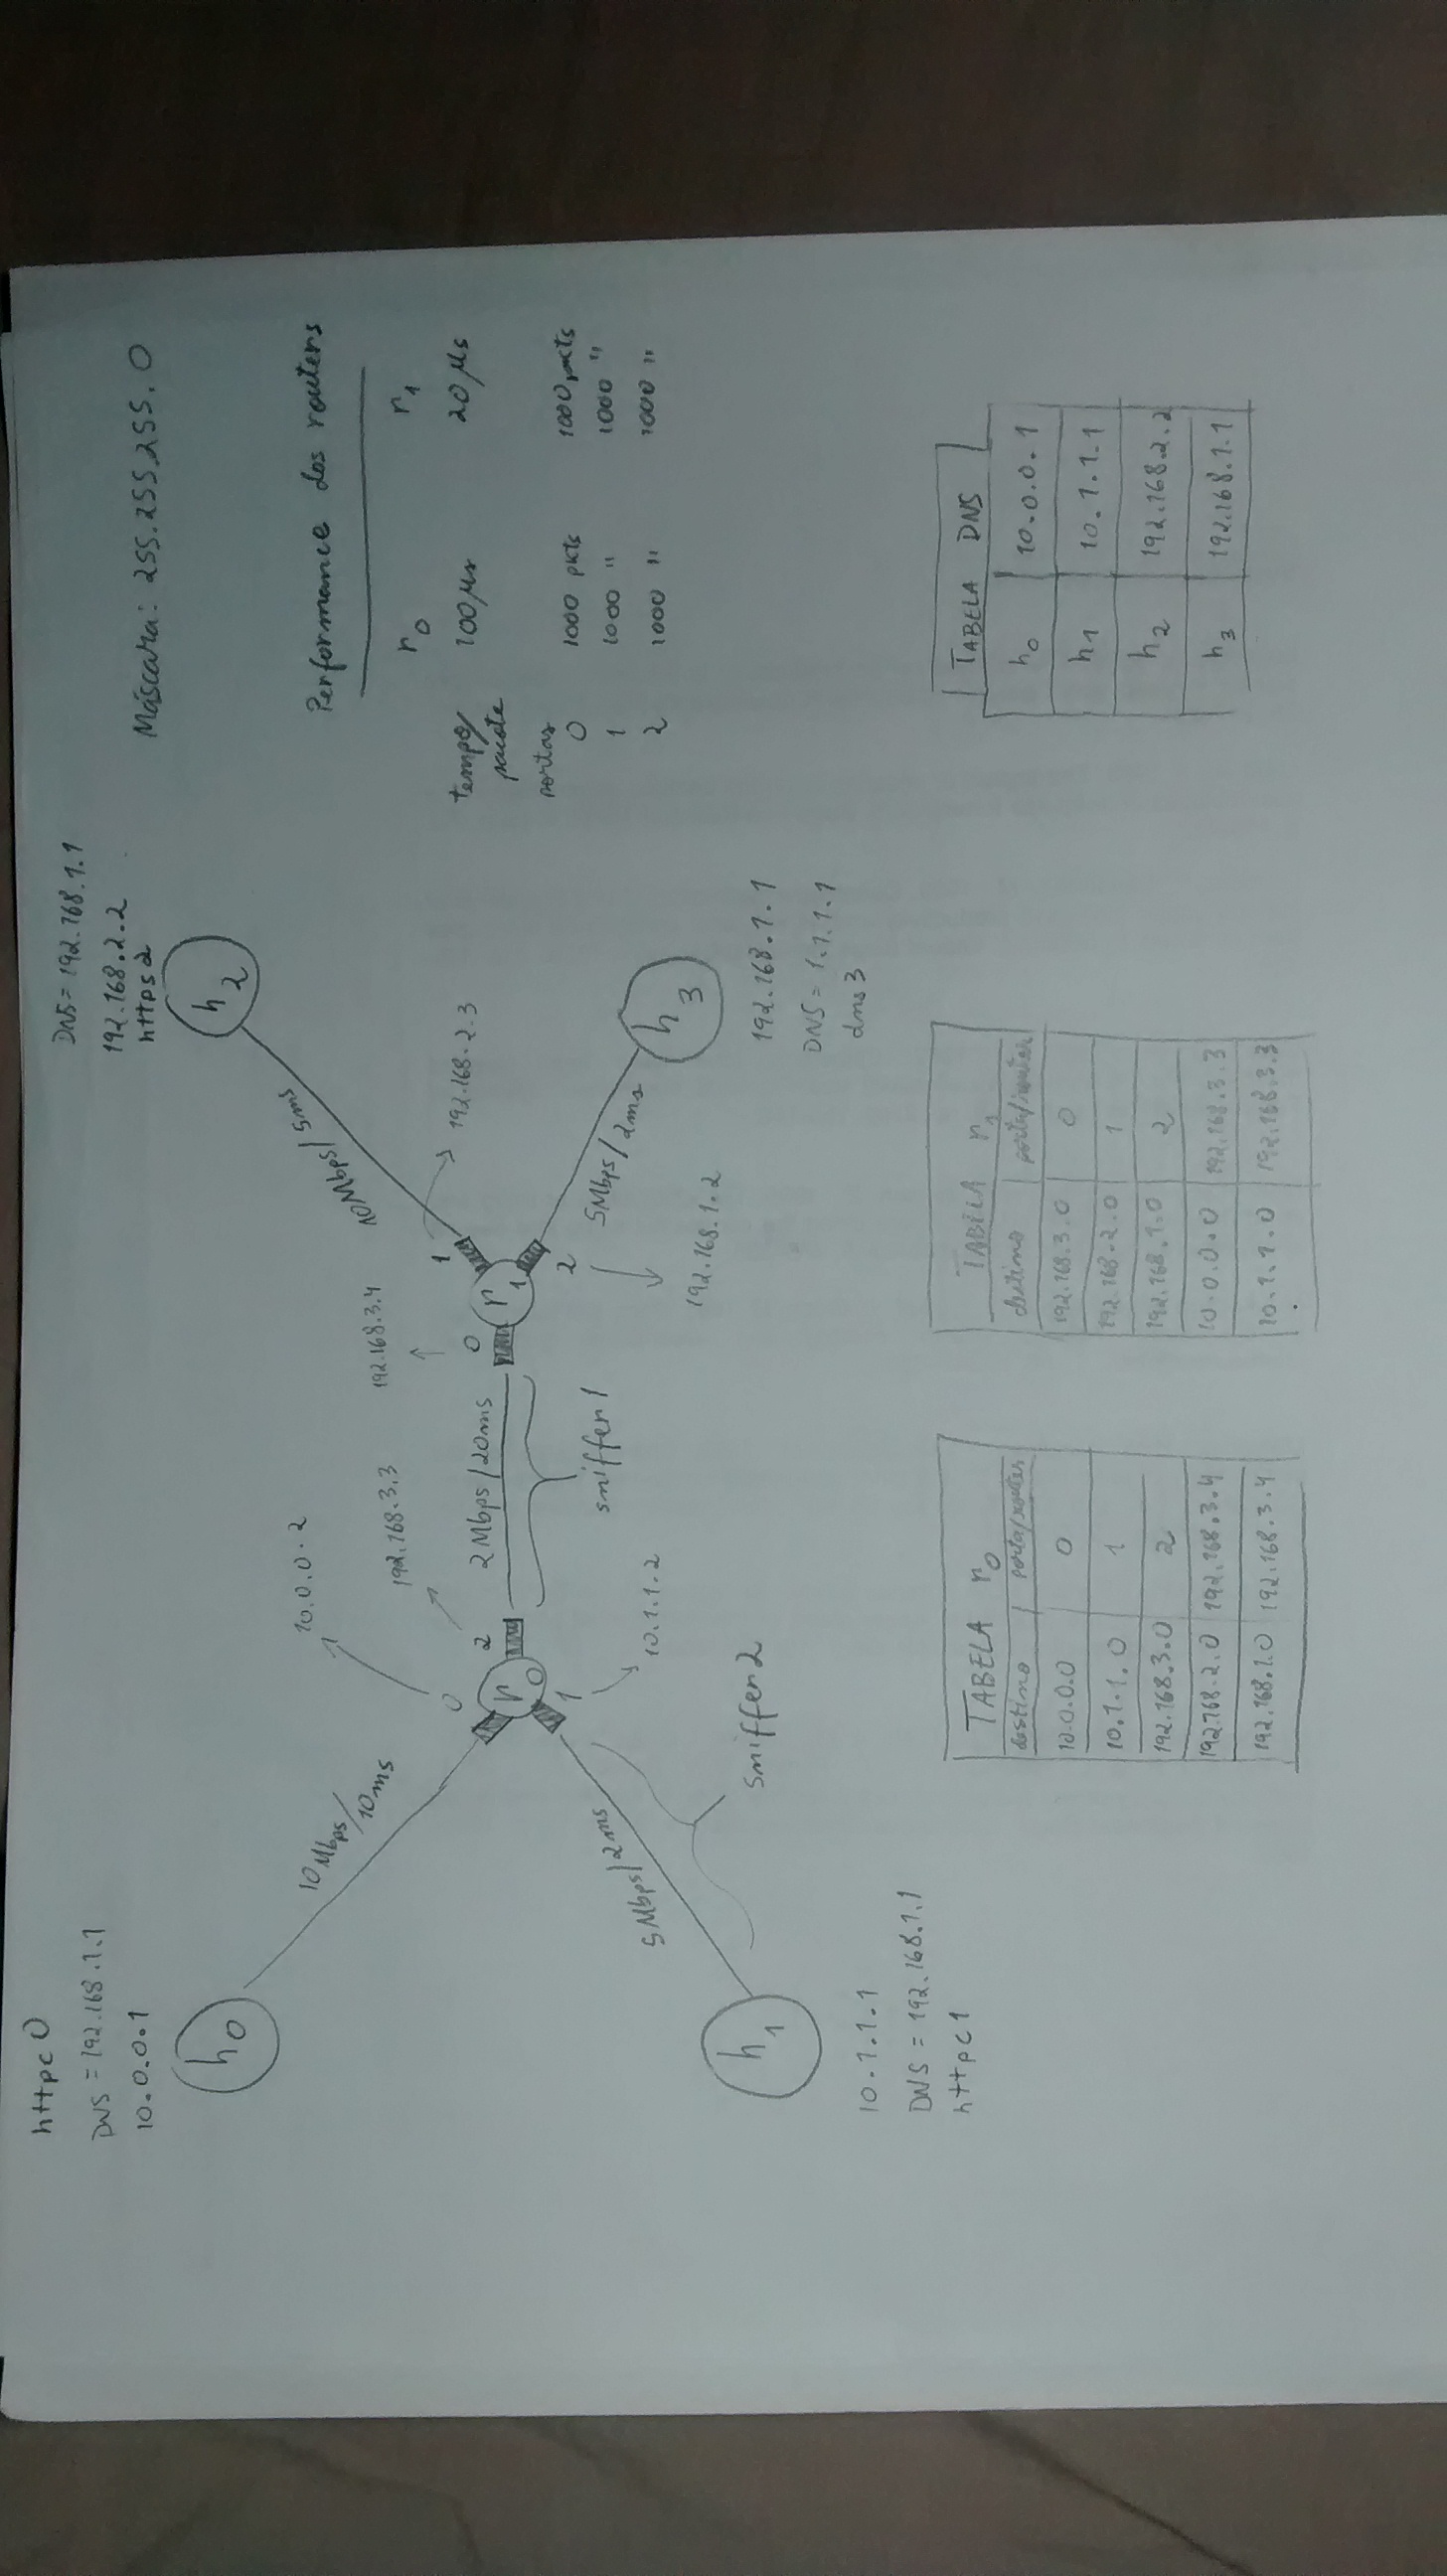 httpc0
DNS = 192.168.1.1
10.0.0.1
h0
10Mbps/10ms
10.0.0.2
0
10.1.1.1
DNS = 192.168.1.1
httpc1
h1
5Mbps/2ms
sniffer2
10.1.1.2
1
r0
2
192.168.3.3
2Mbps/20ms
sniffer1
192.168.3.4
0
r1
1
192.168.2.3
10Mbps/5ms
DNS = 192.168.1.1
192.168.2.2
https2
h2
2
192.168.1.2
5Mbps/2ms
h3
192.168.1.1
DNS = 1.1.1.1
dns3
Máscara: 255.255.255.0
Performance dos routers
r0 r1
tempo/pacote 100μs 20μs
portas
0 1000 pkts 1000 pkts
1 1000 " 1000 "
2 1000 " 1000 "
TABELA r0
destino porta/router
10.0.0.0 0
10.1.1.0 1
192.168.3.0 2
192.168.2.0 192.168.3.4
192.168.1.0 192.168.3.4
TABELA r1
destino porta/router
192.168.3.0 0
192.168.2.0 1
192.168.1.0 2
10.0.0.0 192.168.3.3
10.1.1.0 192.168.3.3
TABELA DNS
h0 10.0.0.1
h1 10.1.1.1
h2 192.168.2.2
h3 192.168.1.1